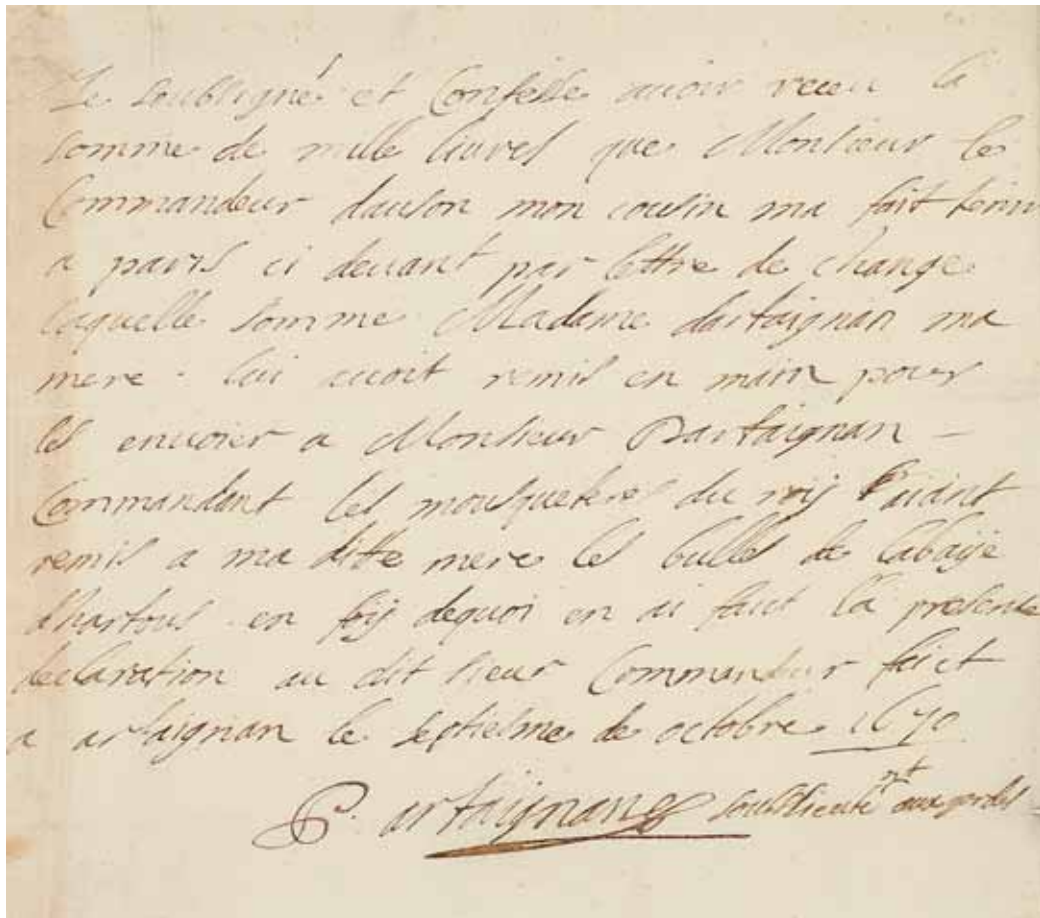 Je soubsigné et Confesse avoir receu la
somme de mille livres que Monsieur le
Commandeur dauson mon cousin ma fait tenir
a paris ci devant par lettre de change
laquelle somme Madame dartaignan ma
mere lui avoit remis en main pour
les envoier a Monsieur Dartaignan –
Commandant les mousqueteres du roy l'aiant
remis a ma ditte mere les bulles de labaije
en foy dequoi en ai faict la presente
declaration au dit sieur Commandeur faict
a artaignan le septiesme de octobre 1670
P. artaignan soulslieutent aux gardes